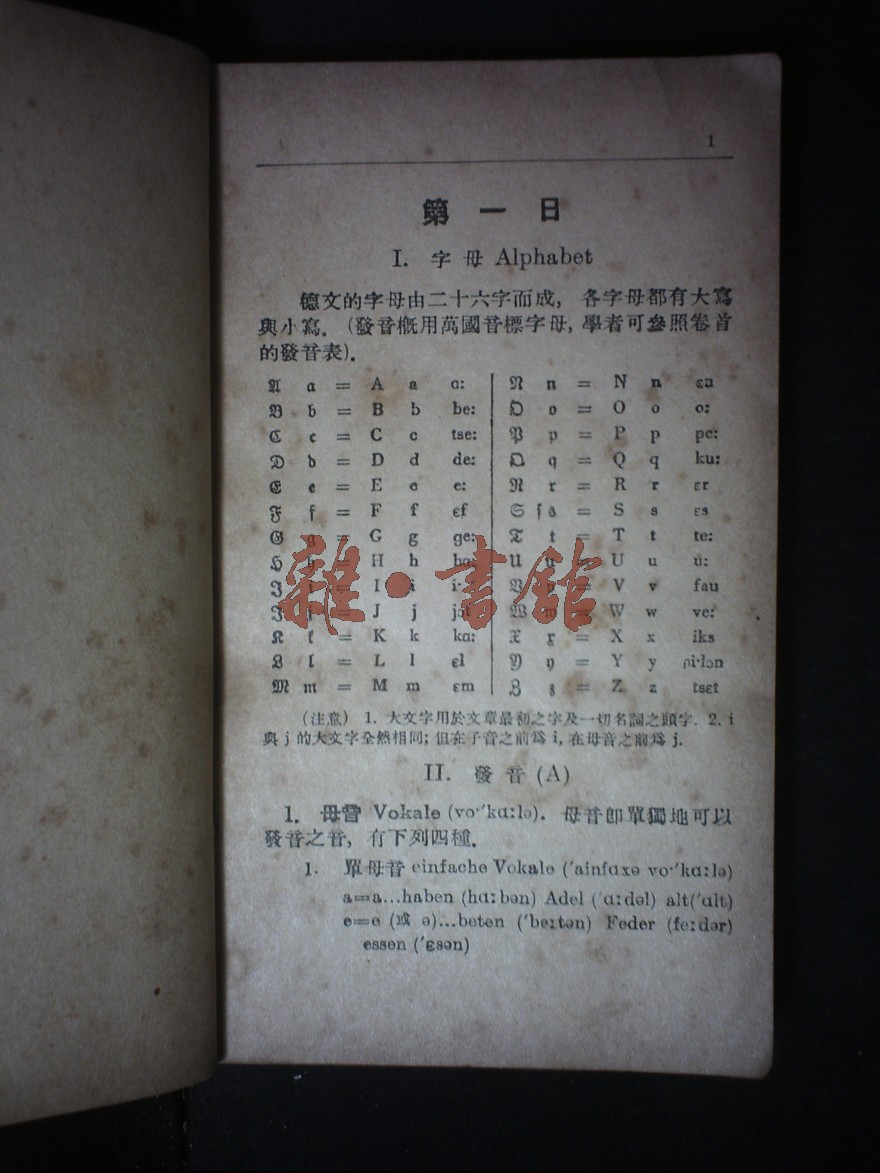 1
第一日
I. 字母 Alphabet
德文的字母由二十六字而成, 各字母都有大寫
與小寫. (發音概用萬國音標字母, 學者可參照卷首
的發音表).
𝔄 𝔞 = A a ɑ:
𝔅 𝔟 = B b be:
ℭ 𝔠 = C c tse:
𝔇 𝔡 = D d de:
𝔈 𝔢 = E e e:
𝔉 𝔣 = F f ɛf
𝔊 𝔤 = G g ge:
ℌ 𝔥 = H h hɑ:
ℑ = I i i·
= J j jɔt
𝔎 𝔨 = K k kɑ:
𝔏 𝔩 = L l ɛl
𝔐 𝔪 = M m ɛm
𝔑 𝔫 = N n ɛn
𝔒 𝔬 = O o o:
𝔓 𝔭 = P p pe:
𝔔 𝔮 = Q q ku:
ℜ 𝔯 = R r ɛr
𝔖 ſ 𝔰 = S s ɛs
𝔗 𝔱 = T t te:
𝔘 𝔲 = U u u:
𝔙 𝔳 = V v fau
𝔚 𝔴 = W w ve:
𝔛 𝔵 = X x iks
𝔜 𝔶 = Y y pi·lɔn
ℨ 𝔷 = Z z tsɛt
雜·書館
(注意) 1. 大文字用於文章最初之字及一切名詞之頭字. 2. i
與 j 的大文字全然相同; 但在子音之前爲 i, 在母音之前爲 j.
II. 發音 (A)
1. 母音 Vokale (vo·ˈkɑ:lə). 母音卽單獨地可以
發音之音, 有下列四種.
1. 單母音 einfache Vokale (ˈainfɑxə vo·ˈkɑ:lə)
a=a...haben (hɑ:bən) Adel (ˈɑ:dəl) alt(ˈɑlt)
e=e (或 ə)...beten (ˈbe:tən) Feder (fe:dər)
essen (ˈɛsən)